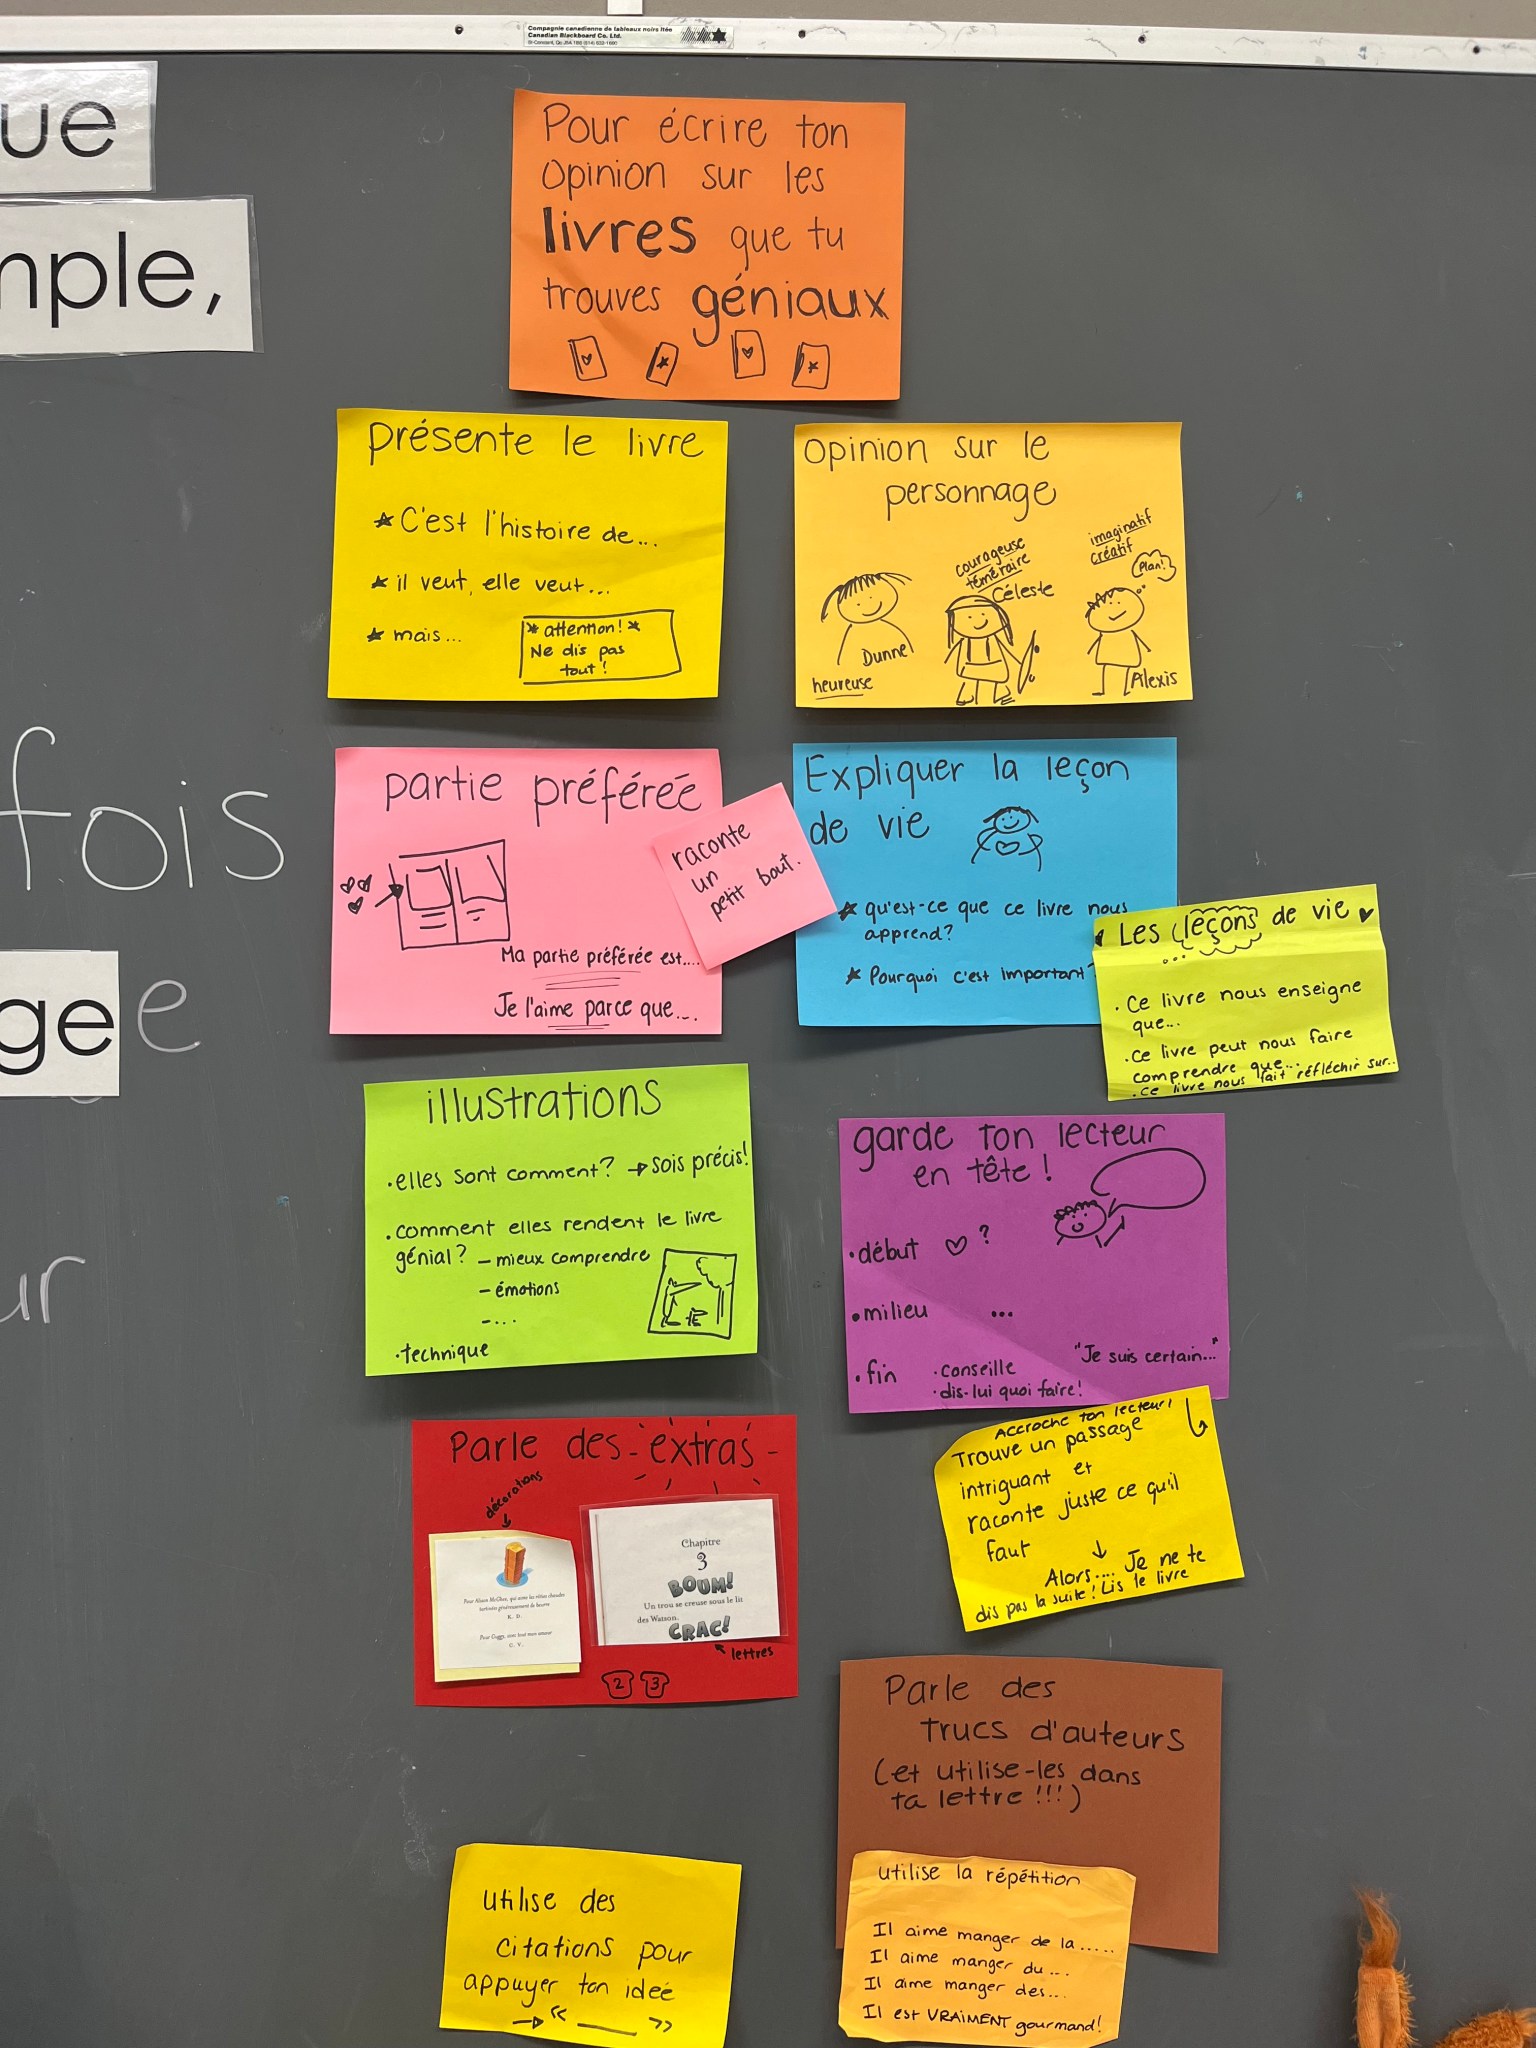 Compagnie canadienne de tableaux noirs ltée
Canadian Blackboard Co. Ltd.
ue
mple,
fois
ge e
ur
Pour écrire ton
opinion sur les
livres que tu
trouves géniaux
présente le livre
C'est l'histoire de...
il veut, elle veut...
mais...
* attention! *
Ne dis pas
tout!
opinion sur le
personnage
imaginatif
créatif
Plan!
courageuse
téméraire
Céleste
Dunne
heureuse
Alexis
partie préféreé
Ma partie préférée est....
Je l'aime parce que...
raconte
un
petit bout.
Expliquer la leçon
de vie
qu'est-ce que ce livre nous
apprend?
Pourquoi c'est important
Les leçons de vie
...
• Ce livre nous enseigne
que...
• Ce livre peut nous faire
comprendre que...
• Ce livre nous fait réfléchir sur..
illustrations
• elles sont comment? → sois précis!
• comment elles rendent le livre
génial? - mieux comprendre
- émotions
- ...
• technique
garde ton lecteur
en tête!
• début ?
• milieu ...
• fin • conseille
• dis-lui quoi faire!
"Je suis certain..."
Accroche ton lecteur!
Trouve un passage
intriguant et
raconte juste ce qu'il
faut
Alors.... Je ne te
dis pas la suite! Lis le livre
Parle des extras
décorations
Pour Alison McGhee, qui aime les rôties chaudes
tartinées généreusement de beurre
K. D.
Pour Guggs, avec tout mon amour
C. V.
Chapitre
3
BOUM!
Un trou se creuse sous le lit
des Watson.
CRAC!
lettres
2 3
Parle des
trucs d'auteurs
(et utilise-les dans
ta lettre!!!)
utilise la répétition
Il aime manger de la .....
Il aime manger du ....
Il aime manger des....
Il est VRAIMENT gourmand!
utilise des
citations pour
appuyer ton ideé
→ « ____ »